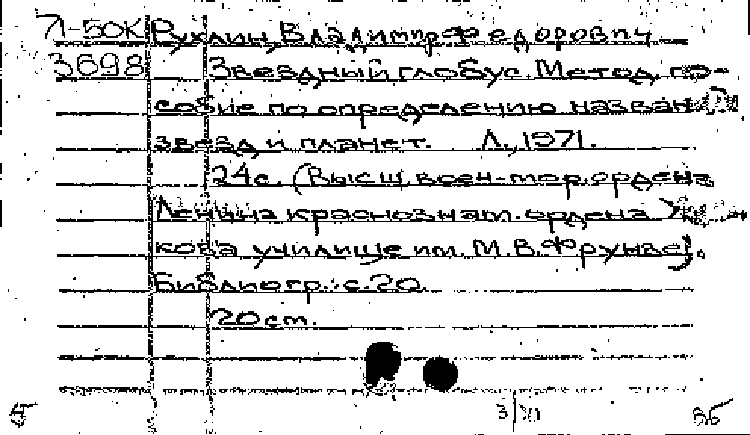 Л-50К Рухлин, Владимир Федорович
3698 Звездный глобус. Метод. по-
собие по определению назван
звезд и планет. Л., 1971.
24с. (Высш. воен-мор. ордена
Ленина краснознам. ордена
кова училище им. М.В.Фрунзе).
Библиогр.: с.20
20 cm.
5 3/XII